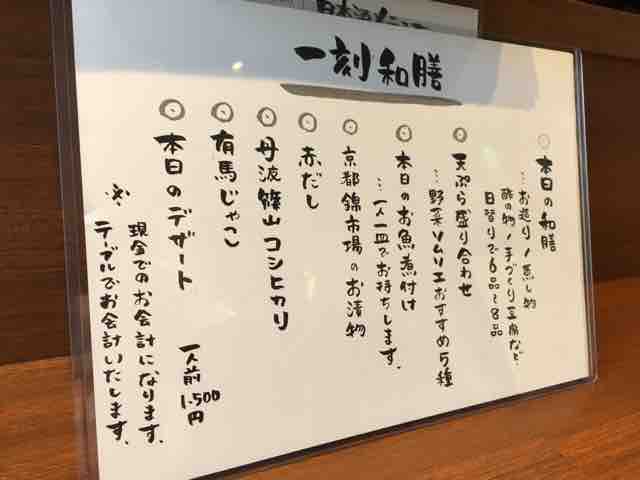 一刻和膳
◎本日の和膳
…お造り/蒸し物
酢の物/手づくり豆腐など
日替りで6品〜8品
◎天ぷら盛り合わせ
…野菜ソムリエおすすめ5種
◎本日のお魚煮付け
…一人一皿でお持ちします。
◎京都錦市場のお漬物
◎赤だし
◎丹波篠山コシヒカリ
◎有馬じゃこ
◎本日のデザート
一人前1.500円
※現金でのお会計になります。
テーブルでお会計いたします。